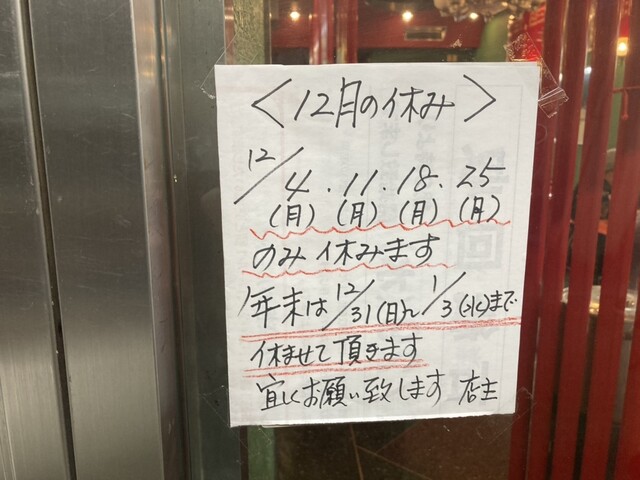 <12月の休み>
12/4.11.18.25
(月)(月)(月)(月)
のみ休みます
年末は12/31(日)~1/3(水)まで
休ませて頂きます
宜しくお願い致します 店主